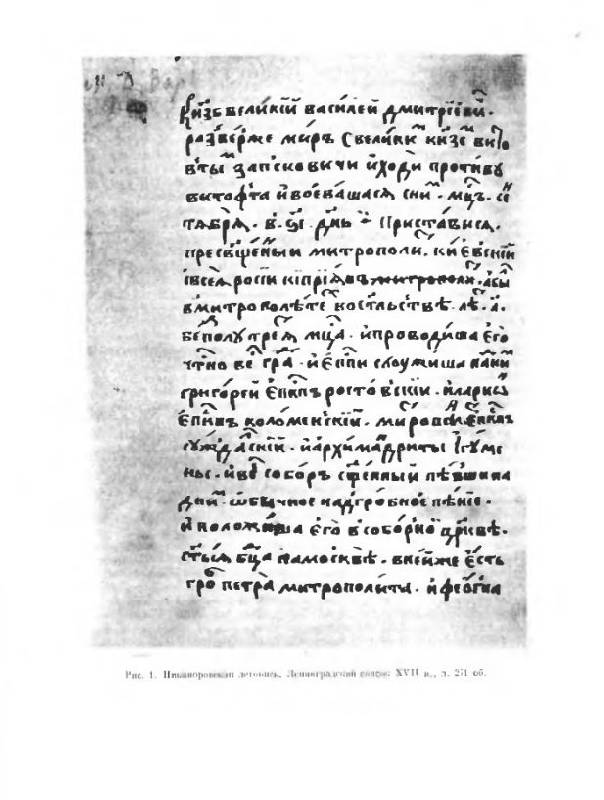 Кн҃зь великїй василей дмитрїеви
разверже миръ с великим кн҃зем вито
втым за псковичи и ходи противу
витофта и воевашася с ним. мц҃ъ. се
тября. в. дн҃ь Приставися.
пресвщ҃енныи митрополи. киевскїй
и всея росии кипрїян митрополи. а бы
в митрополїе лѣ
бес полутретя мц҃а. и проводиша его
чтно ве гра. и еп҃пи служиша над ним
григореи еп҃кпъ ростовскии. иларио
еп҃пкъ коломенскїй. митрофа еп҃пкпъ
суждалскїй. и архимандриты Игуме
ны. и весь соборъ сщ҃енный пѣвшина
дним ѡбычное надгробное пѣние.
И положиша его в соборной цр҃квѣ.
ст҃ыя бц҃а на москвѣ. в ней же есть
гроб петра митрополита. и феогна
Рис. 1. Никаноровская летопись. Ленинградский список XVII в., л. 251 об.